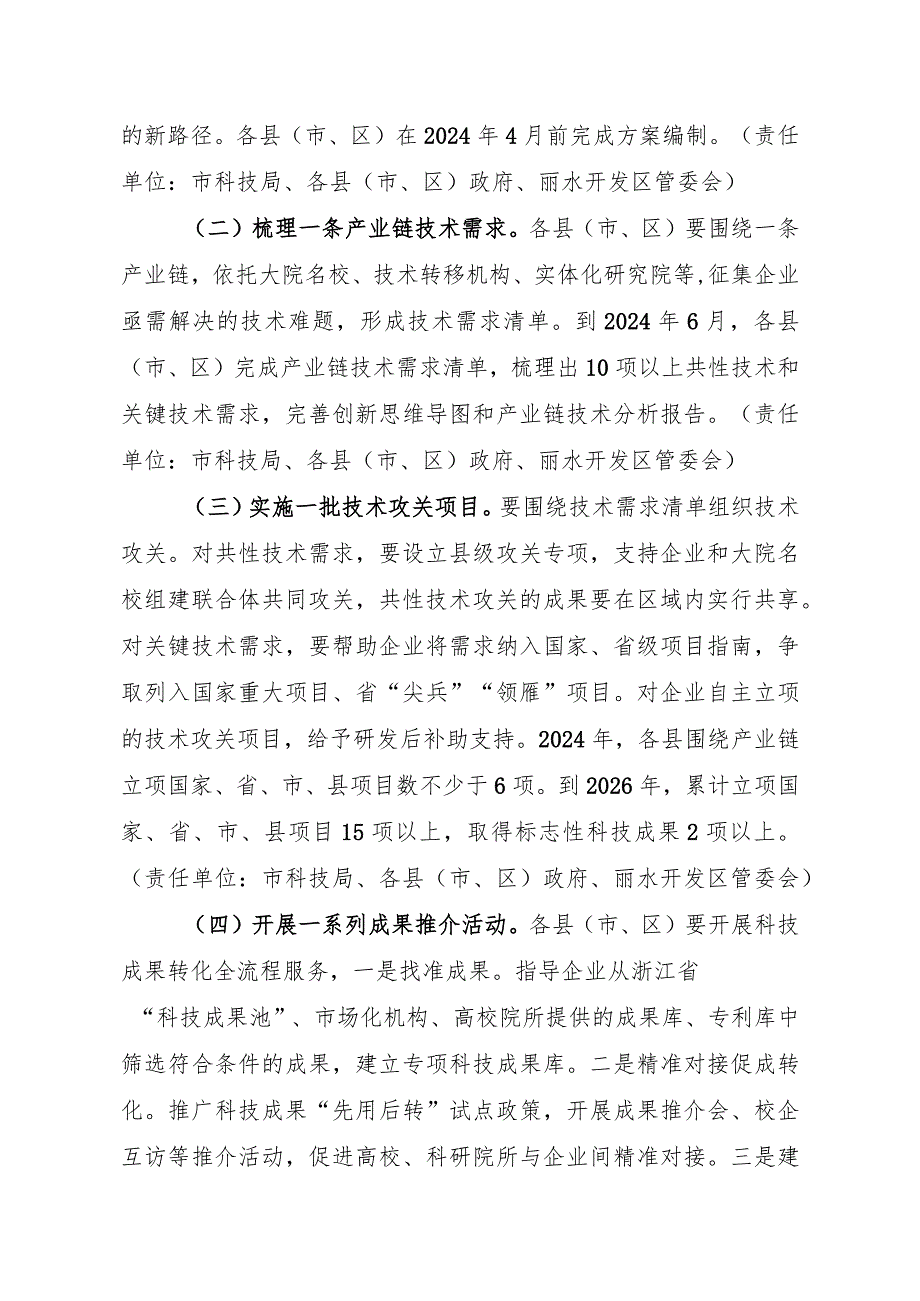 的新路径。各县（市、区）在 2024 年 4 月前完成方案编制。（责任
单位：市科技局、各县（市、区）政府、丽水开发区管委会）
（二）梳理一条产业链技术需求。各县（市、区）要围绕一条
产业链，依托大院名校、技术转移机构、实体化研究院等,征集企业
亟需解决的技术难题，形成技术需求清单。到 2024 年 6 月，各县
（市、区）完成产业链技术需求清单，梳理出 10 项以上共性技术和
关键技术需求，完善创新思维导图和产业链技术分析报告。（责任
单位：市科技局、各县（市、区）政府、丽水开发区管委会）
（三）实施一批技术攻关项目。要围绕技术需求清单组织技术
攻关。对共性技术需求，要设立县级攻关专项，支持企业和大院名
校组建联合体共同攻关，共性技术攻关的成果要在区域内实行共享。
对关键技术需求，要帮助企业将需求纳入国家、省级项目指南，争
取列入国家重大项目、省“尖兵”“领雁”项目。对企业自主立项
的技术攻关项目，给予研发后补助支持。2024 年，各县围绕产业链
立项国家、省、市、县项目数不少于 6 项。到 2026 年，累计立项国
家、省、市、县项目 15 项以上，取得标志性科技成果 2 项以上。
（责任单位：市科技局、各县（市、区）政府、丽水开发区管委会）
（四）开展一系列成果推介活动。各县（市、区）要开展科技
成果转化全流程服务，一是找准成果。指导企业从浙江省
“科技成果池”、市场化机构、高校院所提供的成果库、专利库中
筛选符合条件的成果，建立专项科技成果库。二是精准对接促成转
化。推广科技成果“先用后转”试点政策，开展成果推介会、校企
互访等推介活动，促进高校、科研院所与企业间精准对接。三是建